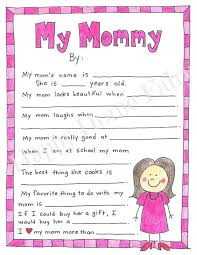 My Mommy
By:
My mom's name is
She is years old.
My mom looks beautiful when
My mom laughs when
My mom is really good at
When I am at school my mom
The best thing she cooks is
My favorite thing to do with my
mom is
If I could buy her a gift, I
would buy her
I ❤ my mom more than